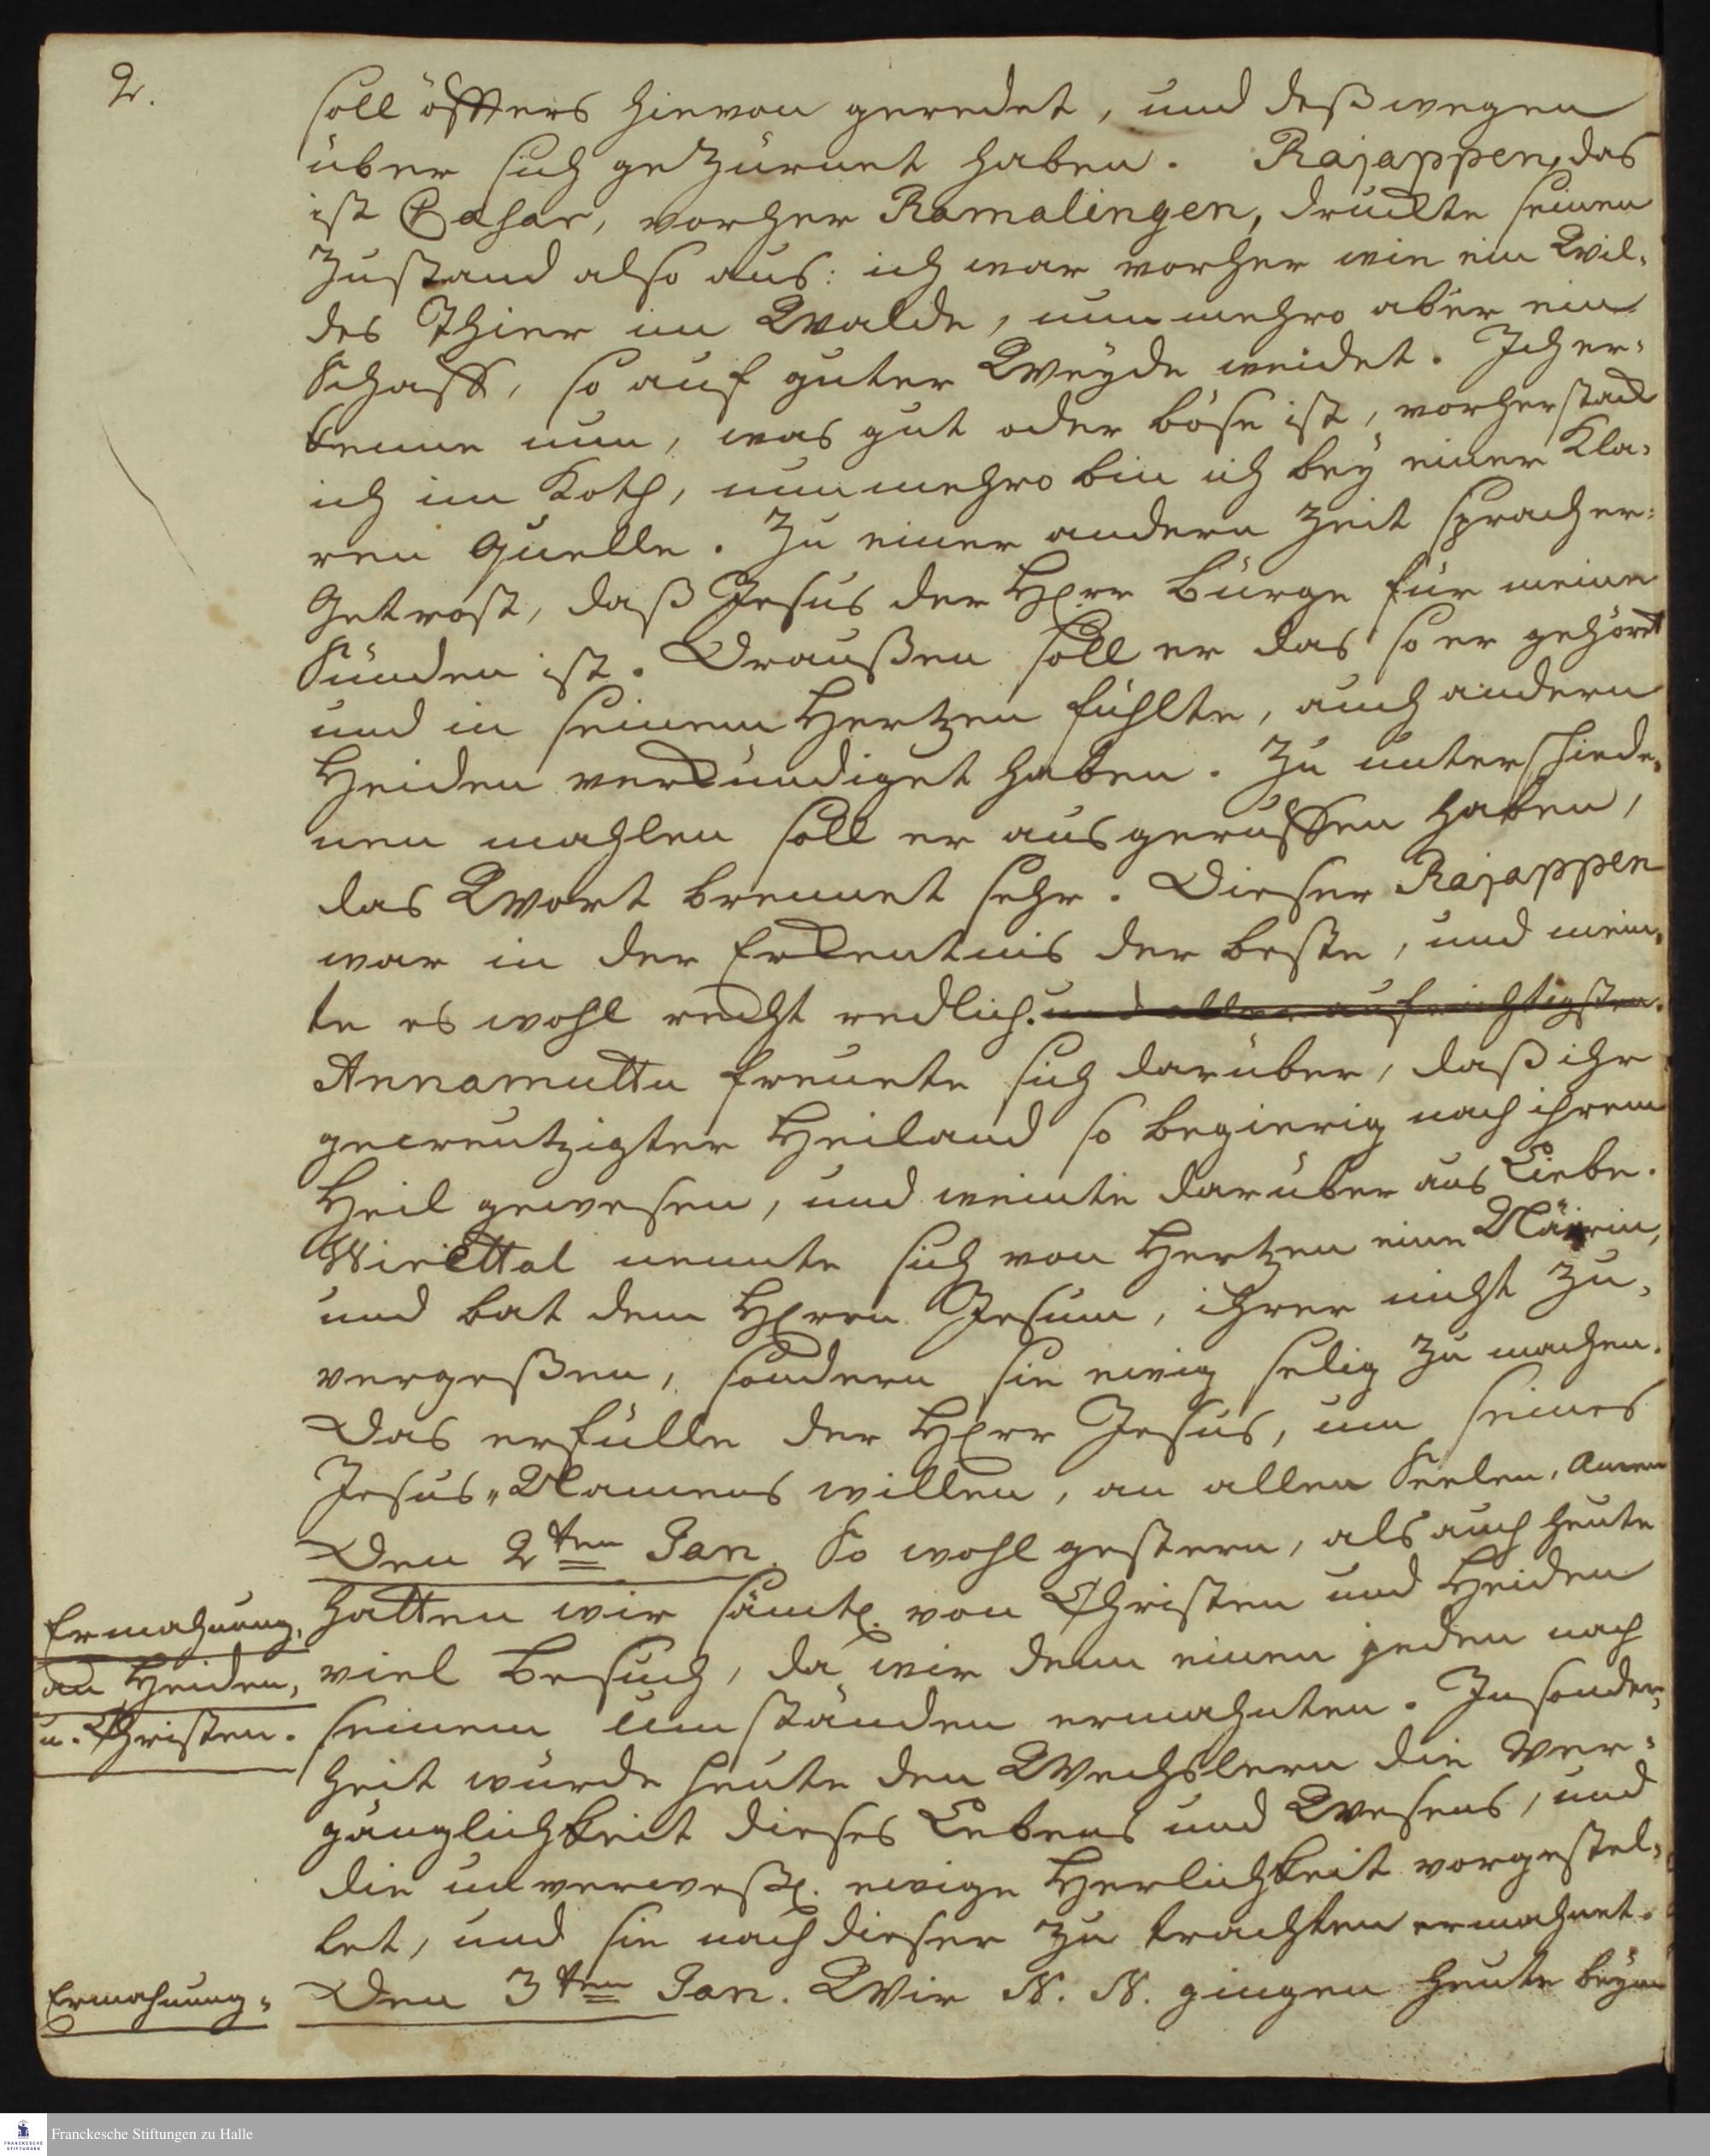 2.
soll öffters hievon geredet, und deßwegen
über sich gezürnet haben. Rajappen, das
ist Cæsar, vorher Ramalingen, druckte seinen
Zustand also aus: ich war vorher wie ein Wil-
des Thier im Walde, nunmehro aber ein
Schaff, so auf guter Weyde weidet. Ich er-
kenne nun, was gut oder böse ist, vorher stack
ich im Koth, nunmehro bin ich bey einer Kla-
ren Quelle. Zu einer andern Zeit sprach er:
Getrost, daß Jesus der HErr Bürge für meine
Sünden ist. Draußen soll er das so er gehört
und in seinem Hertzen fühlte, auch andern
Heiden verkündiget haben. Zu unterschiede-
nen mahlen soll er ausgeruffen haben,
das Wort brennet sehr. Dieser Rajappen
war in der Erkentnis der beste, und mein-
te es wohl recht redlich. und aller aufrichtigsten.
Annamuttu freuete sich darüber, daß ihr
gecreutzigter Heiland so begierig nach ihrem
Heil gewesen, und weinte darüber aus Liebe.
nennte sich von Hertzen eine Närrin,
und bat dem HErrn Jesum, ihrer nicht zu-
vergeßen, sondern sie ewig selig zu machen.
Das erfülle der HErr Jesus, um seines
Jesus-Namens willen, an allen Seelen, Amen
Den 2ten Jan. So wohl gestern, als auch heute
hatten wir sämtl. von Christen und Heiden
viel Besuch, da wir denn einen jeden nach
seinem Umständen ermahnten. Insonder-
heit wurde heute den Wechslern die Ver-
gänglichkeit dieses Lebens und Wesens, und
die unverweßl. ewige Herlichkeit vorgestel-
let, und sie nach dieser zu trachten ermahnet.
Den 3ten Jan. Wir N. N. gingen heute beym
Ermahnung,
an Heiden,
u. Christen.
Ermahnung-
Franckesche Stiftungen zu Halle
FRANCKESCHE
STIFTUNGEN